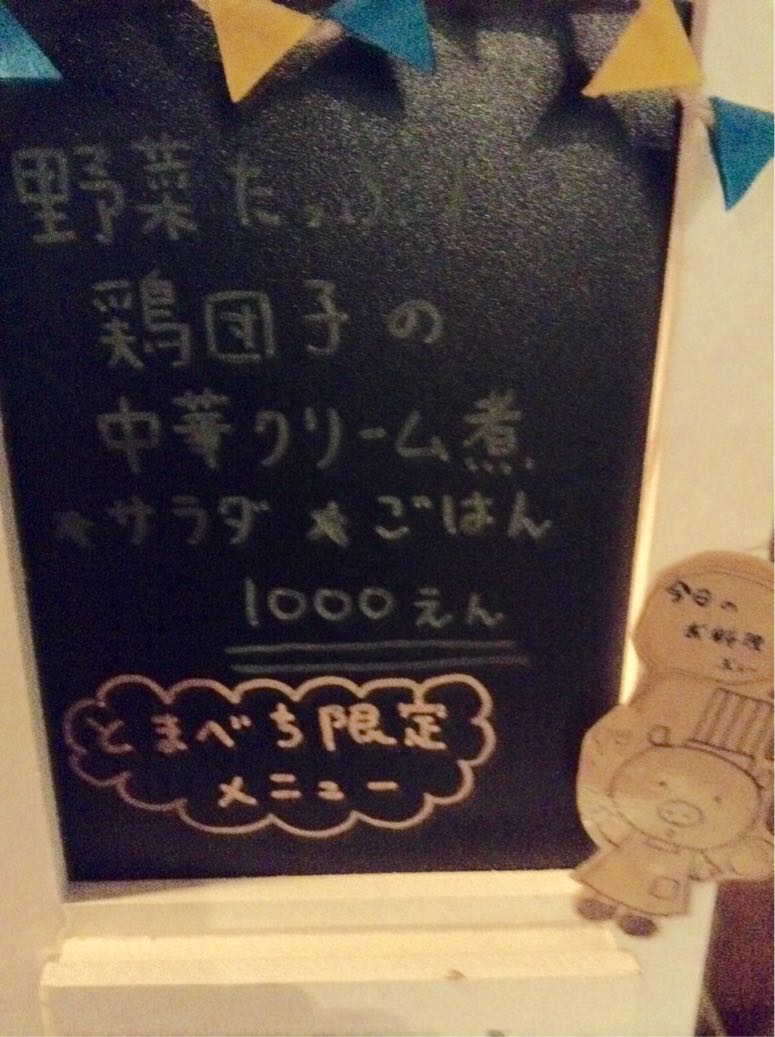 野菜たっぷり
鶏団子の
中華クリーム煮
★サラダ ★ごはん
1000えん
とまべち限定
メニュー
今日の
お料理